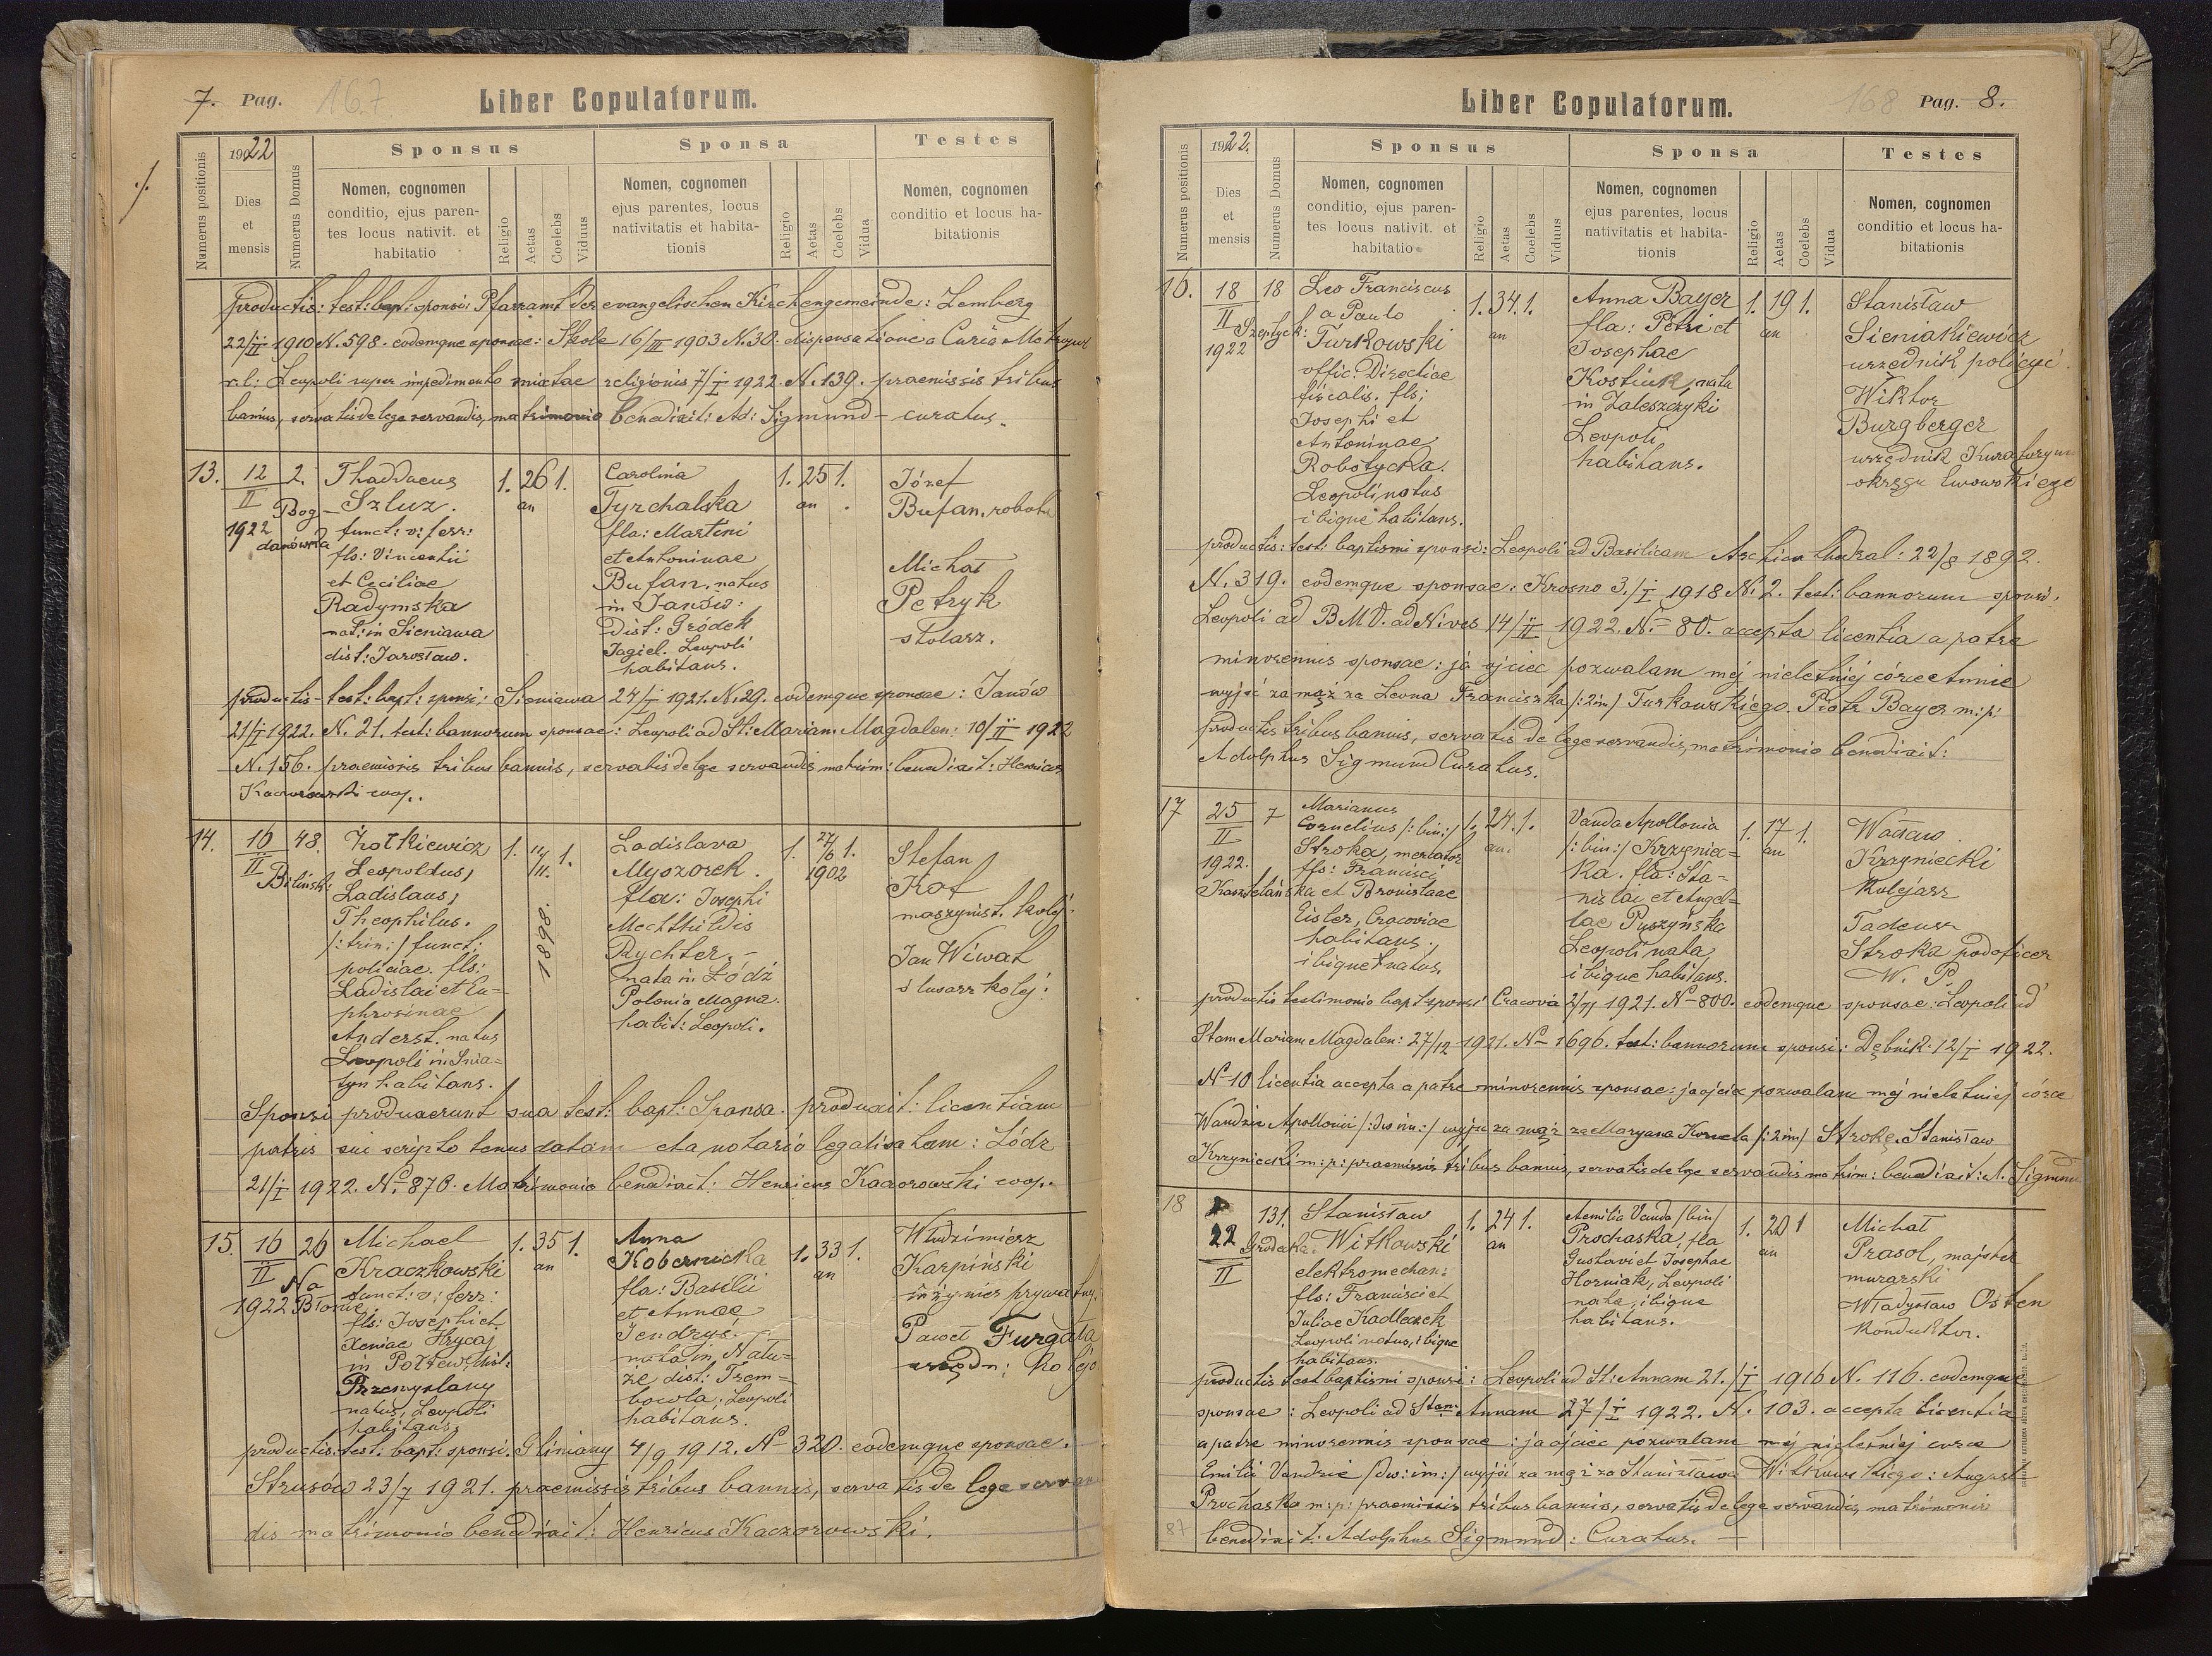 7. Pag. 167
Liber Copulatorum.
Numerus positionis
1922
Dies
et
mensis
Numerus Domus
Sponsus
Nomen, cognomen
conditio, ejus paren-
tes locus nativit. et
habitatio
Religio
Aetas
Coelebs
Viduus
Sponsa
Nomen, cognomen
ejus parentes, locus
nativitatis et habita-
tionis
Religio
Aetas
Coelebs
Vidua
Testes
Nomen, cognomen
conditio et locus ha-
bitationis
productis: test: bapt: sponsi: Pfarramt der evangelischen Kirchengemeinde: Lemberg
22/II 1910 N. 598. eodemque sponsae: Skole 16/III 1903 N. 30. dispensatione a Curia Metropol
r. l: Leopoli super impedimento mixtae religionis 7/I 1922. N. 139. praemissis tribus
bannis, servatis de lege servandis, matrimonio benedixit: Ad: Sigmund - curatus.
13.
12
II
1922
2.
Bog-
danówka
Thaddaeus
Szluz.
funct: v: ferr:
fls: Vincentii
et Ceciliae
Radymska
nat: in Sieniawa
dist: Jarosław.
1. 26 1.
an
Carolina
Tyrchalska
fla: Martini
et Antoninae
Bufan, natus
in Janów:
Dist: Gródek
Jagiel. Leopoli
habitans.
1. 25 1.
an
Józef
Bufan, robotn
Michał
Petryk
stolarz.
productis - test: bapt: sponsi: Sieniawa 24/I 1921. N. 29. eodemque sponsae: Janów
21/I 1922. N. 21. test: bannorum sponsae: Leopoli ad St: Mariam Magdalen: 10/II 1922
N. 156. praemissis tribus bannis, servatis de lege servandis matrim: benedixit: Henricus
Kaczorowski coop..
14.
16
II
48.
Biliński
Żołkiewicz
Leopoldus,
Ladislaus,
Theophilus.
/: trin:/ funct:
policiae. fls:
Ladislai et Eu=
phrosinae
Anderst. natus
Leopoli in Snia=
tyn habitans.
1. 11/11. 1.
1898.
Ladislava
Myszorek.
fla: Josephi
Mechthildis
Rychter, -
nata in Łódź
Polonia Magna.
habit: Leopoli.
1. 27/6 1.
1902
Stefan
Kof
maszynist. kolej:
Jan Wiwat
ślusarz kolej:
Sponsi produxerunt sua test: bapt: Sponsa. produxit: licentiam
patris sui scripto tenus datam et a notario legalisatam: Łódz
21/I 1922. No. 878. Matrimonio benedixit: Henricus Kaczorowski coop..
15.
16
II
1922
26
Na
Błonie
Michael
Kraczkowski
funct: v: ferr:
fls: Josephi et
Xeniae Hrycaj
in Połtew, dist:
Przemyslany
natus, Leopoli
habitans.
1. 35 1.
an
Anna
Kobernicka
fla: Basilii
et Annae
Jendryś.
nata in Nału=
że dist: Trem=
bowla, Leopoli
habitans.
1. 33 1.
an
Włudzimierz
Karpiński
inżynier prywatny.
Paweł Furgała
urzędn: kolejo
productis: test: bapt: sponsi. Gliniany 4/9 1912. N- 320. eodemque sponsae.
Strusów 23/7 1921. praemissis tribus bannis, servatis de lege servan
dis matrimonio benedixit: Henricus Kaczorowski.
Liber Copulatorum.
168 Pag. 8.
Numerus positionis
1922.
Dies
et
mensis
Numerus Domus
Sponsus
Nomen, cognomen
conditio, ejus paren-
tes locus nativit. et
habitatio
Religio
Aetas
Coelebs
Viduus
Sponsa
Nomen, cognomen
ejus parentes, locus
nativitatis et habita-
tionis
Religio
Aetas
Coelebs
Vidua
Testes
Nomen, cognomen
conditio et locus ha-
bitationis
16.
18
II
1922
18
Szeptyck:
Leo Franciscus
a Paulo
Turkowski
offic: Directiae
fiscalis. fls;
Josephi et
Antoninae
Robotycka.
Leopoli natus
ibique habitans.
1. 34 1.
an
Anna Bayer
fla: Petri et
Josephae
Kostiuk, nata
in Zaleszczyki
Leopoli,
habitans.
1. 19 1.
an
Stanisław
Sieniakiewicz
urzędnik policyi.
Wiktor
Burgberger
urzędnik Kuratoryum
okręgu lwowskiego
productis: test: baptismi sponsi: Leopoli ad Basilicam Archicathedral: 22/8 1892.
N. 319. eodemque sponsae: Krosno 3./I 1918 N. 2. test: bannorum sponsi:
Leopoli ad B.M.V. ad Nives 14/II 1922. N.- 80. accepta licentia a patre
minorennis sponsae: ja ojciec pozwalam mej nieletniej córce Annie
wyjść za mąż za Leona Franciszka /:2im/ Turkowskiego. Piotr Bayer m:p:
productis tribus bannis, servatis de lege servandis, matrimonio benedixit:
Adolphus Sigmund Curatus.
17
25
II
1922.
7
Kasztelańska
Marianus
Cornelius /: bin:/
Stroka, mercator
fls: Francisci
et Bronislaae
Eisler, Cracoviae
habitans.,
ibique natus,
1. 24. 1.
an.
Vanda Apollonia
/: bin:/ Krzynie=
ka. fla: Sta=
nislai et Angel=
lae Puszyńska
Leopoli nata,
ibique habitans.
1. 17 1.
an
Wacław
Krzyniecki
kolejarz
Tadeusz
Stroka podoficer
W. P.
productis testimonio bapt sponsi Cracovia 2/VI 1921. N- 800. eodemque sponsae: Leopoli ad
Stam Mariam Magdalen: 27/12 1921. No 1696. test: bannorum sponsi: Dębnik: 12/I 1922.
No 10 licentia accepta a patre minorennis sponsae: ja ojciec pozwalam mej nieletniej córce
Wandzie Apollonii /: dwim:/ wyjść za mąż za Maryana Kornela /: 2im/ Strokę. Stanisław
Krzyniecki m:p: praemissis tribus bannis, servatis de lege servandis matrim: benedixit: A. Sigmund
18
22
II
131.
Gródecka
Stanisław
Witkowski
elektromechan:
fls: Francisci et
Juliae Kadleczek
Leopoli natus, ibique
habitans.
1. 24 1.
an
Aemilia Vanda /bin/
Prochaska, fla
Gustavi et Josephae
Horniak, Leopoli
nata, ibique
habitans.
1. 20 1
an
Michał
Prasol, majster
murarski
Władysław Osten
konduktor.
productis test baptismi sponsi: Leopoli ad St: Annam 21./I 1916 N. 116. eodemque
sponsae: Leopoli ad Stam Annam 27/I 1922. N. 103. accepta licentia
a patre minorennis sponsae: ja ojciec pozwalam mej nieletniej córce
Emilii Vandzie /dw: im:/ wyjść za mąż za Stanisława Witkowskiego: August
Prochaska m:p: praemissis tribus bannis, servatis de lege servandis, matrimonio
benedixit: Adolphus Sigmund: Curatus. -
87